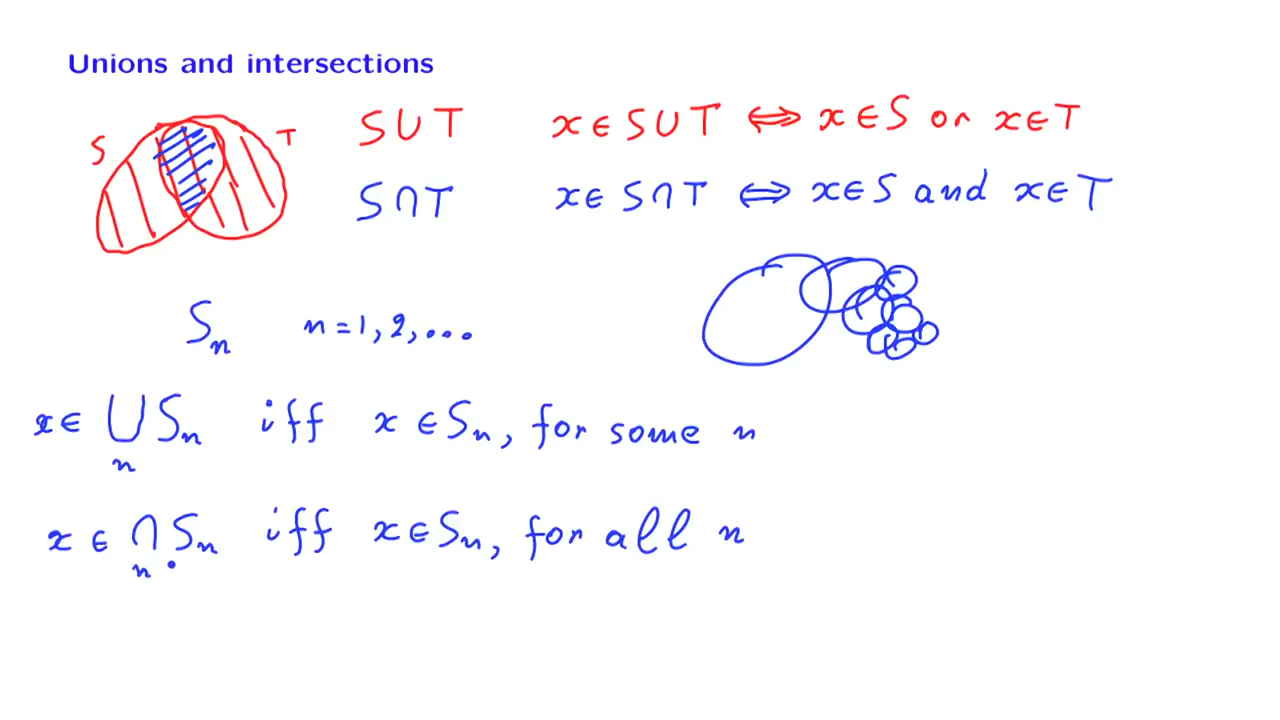 Unions and intersections
S T S ∪ T x ∈ S ∪ T ⟺ x ∈ S or x ∈ T
S ∩ T x ∈ S ∩ T ⟺ x ∈ S and x ∈ T
Sₙ n = 1, 2, ...
x ∈ ⋃ Sₙ iff x ∈ Sₙ, for some n
n
x ∈ ∩ Sₙ iff x ∈ Sₙ, for all n
n